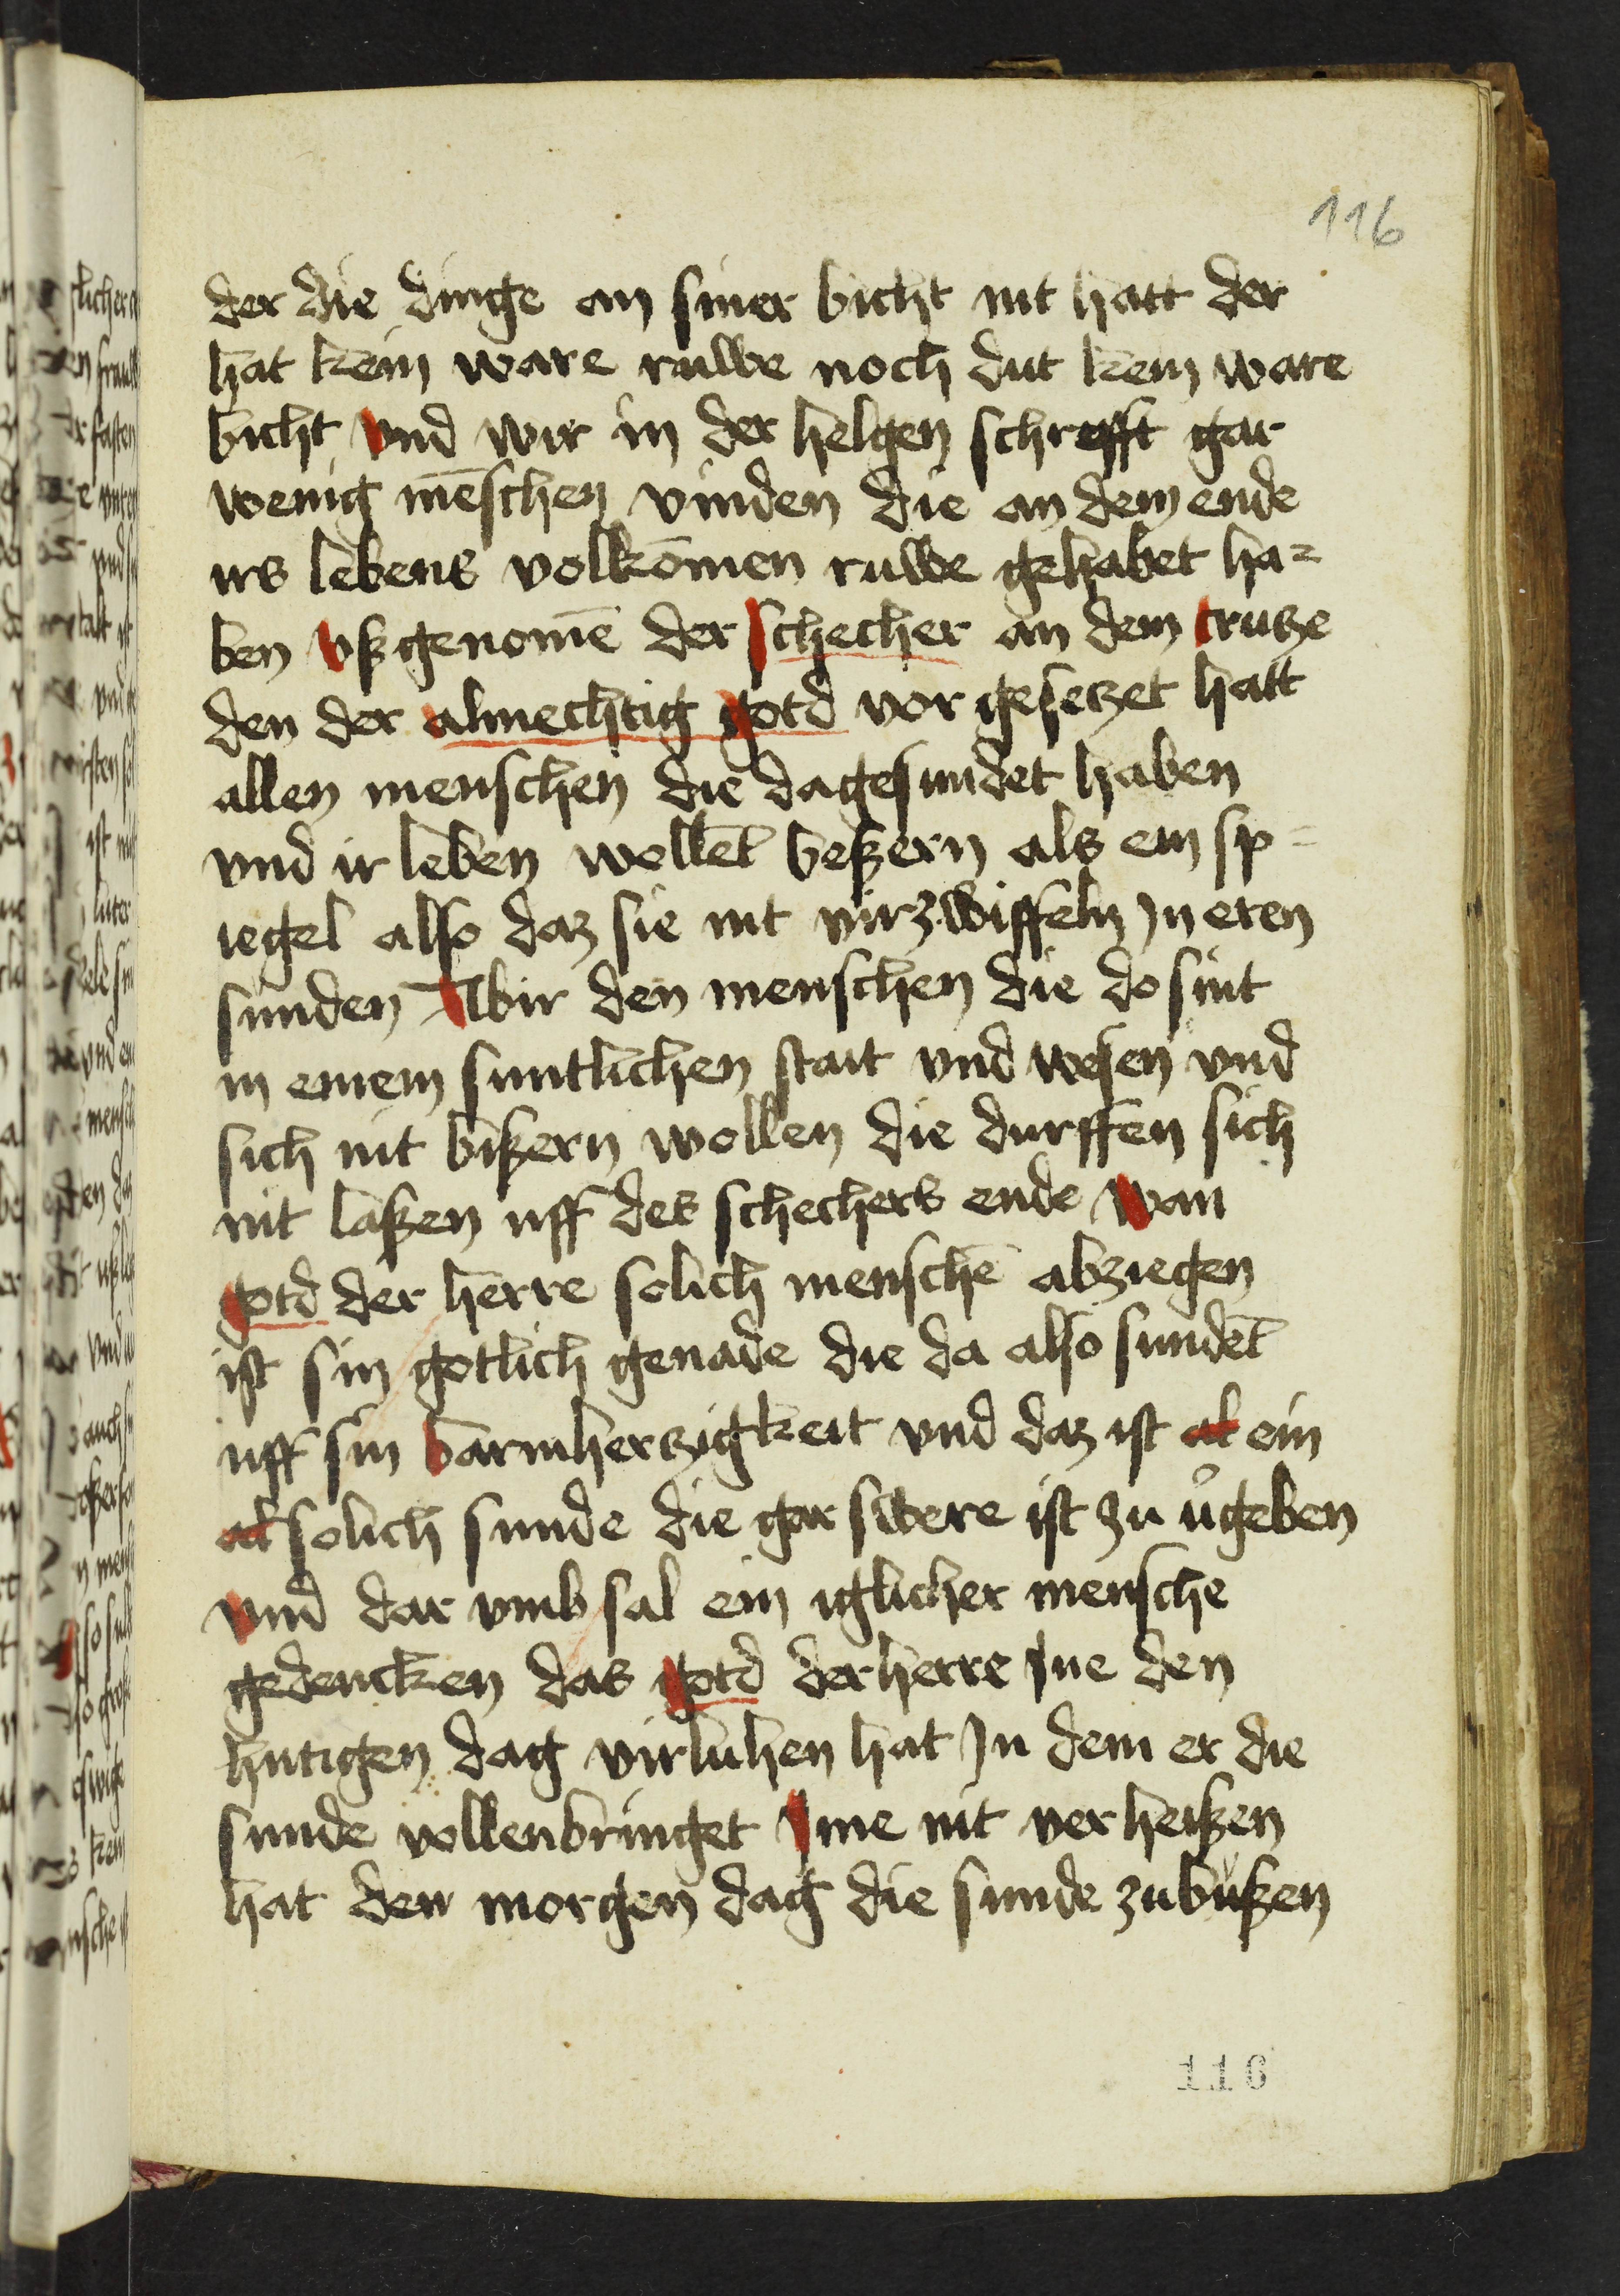 116
der die dinge an siner bicht nit hatt der
hat kein ware ruwe noch dut kein ware
bicht Vnd wir in der helgen schrefft gar
wenig mēschen vinden die an dem ende
irs lebens volkōmen ruwe gehabet ha=
ben Vßgenomē der schecher an dem crutze
den der almechtig gotd vor gesetzet hatt
allen menschen die da gesundet haben
vnd ir leben wollēt beßern als ein sp=
iegel also daz sie nit virzwiffeln Jn eren
sunden Abir den menschen die do sint
in einem suntlichen stait vnd wesen vnd
sich nit bißern wollen die durffen sich
nit laßen uff des schechers ende Wan
gotd der herre solich menschē abziegen
ist sin gotlich genade die da also sundēt
uff sin barmhertzigkeit vnd daz ist al ein
al solich sunde die gar swere ist zu v͛geben
Vnd dar vmb sal ein iglicher mensche
gedencken das gotd der herre Jne den
hutigen dag virluhen hat Jn dem er die
sunde vollenbringet Jme nit verheißen
hat den morgen dag die sunde zu bůßen
116